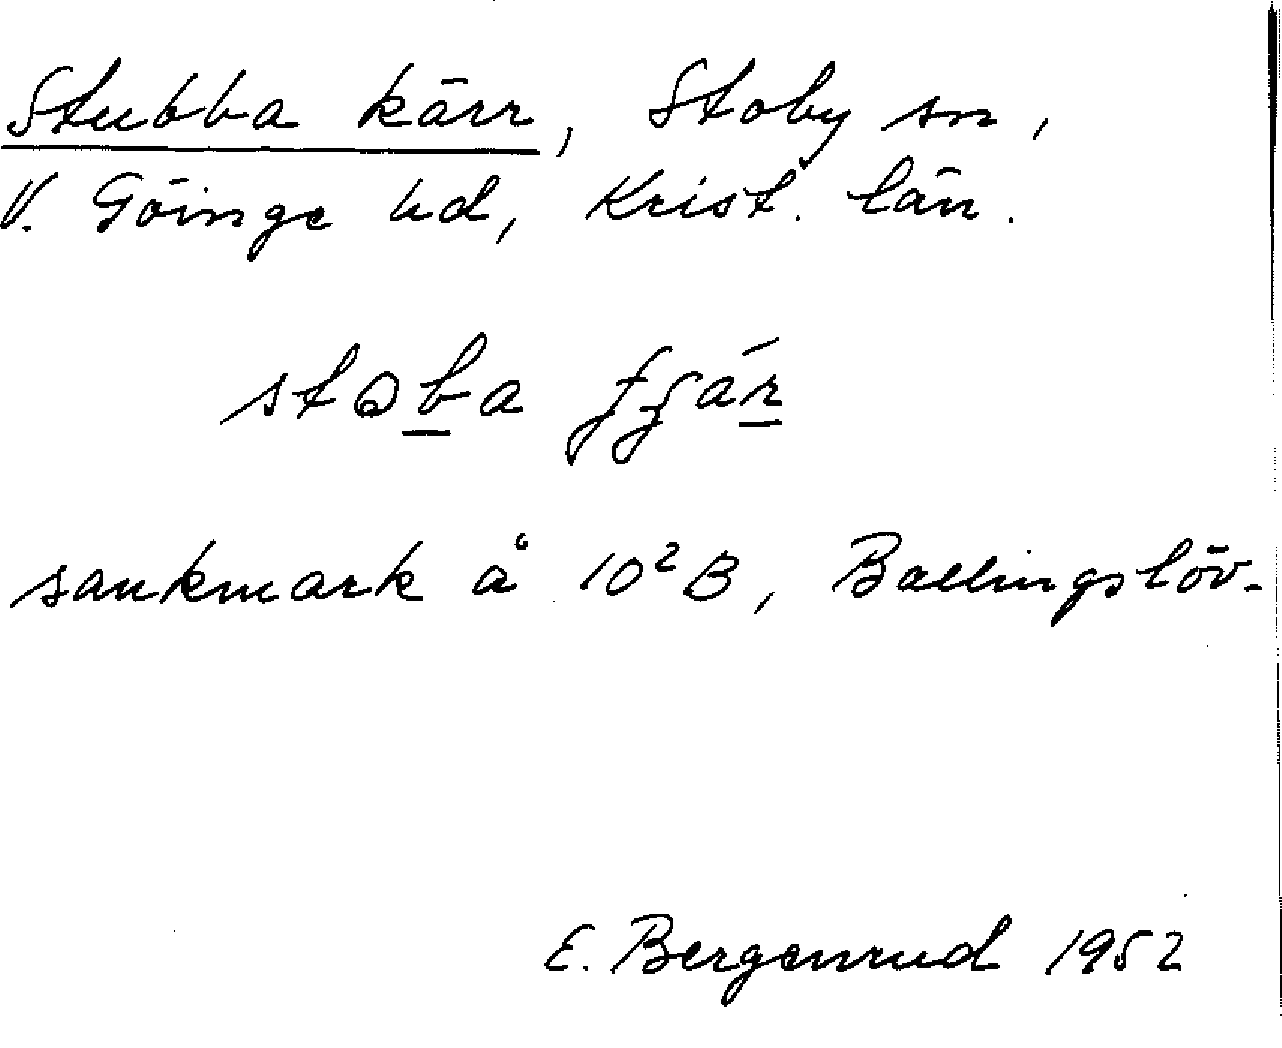 Stubba kärr, Stoby sn,
V. Göinge hd, Krist. län.
stɷba ʄʒár
sankmark å 10²B, Ballingslöv.
E. Bergenrud 1952